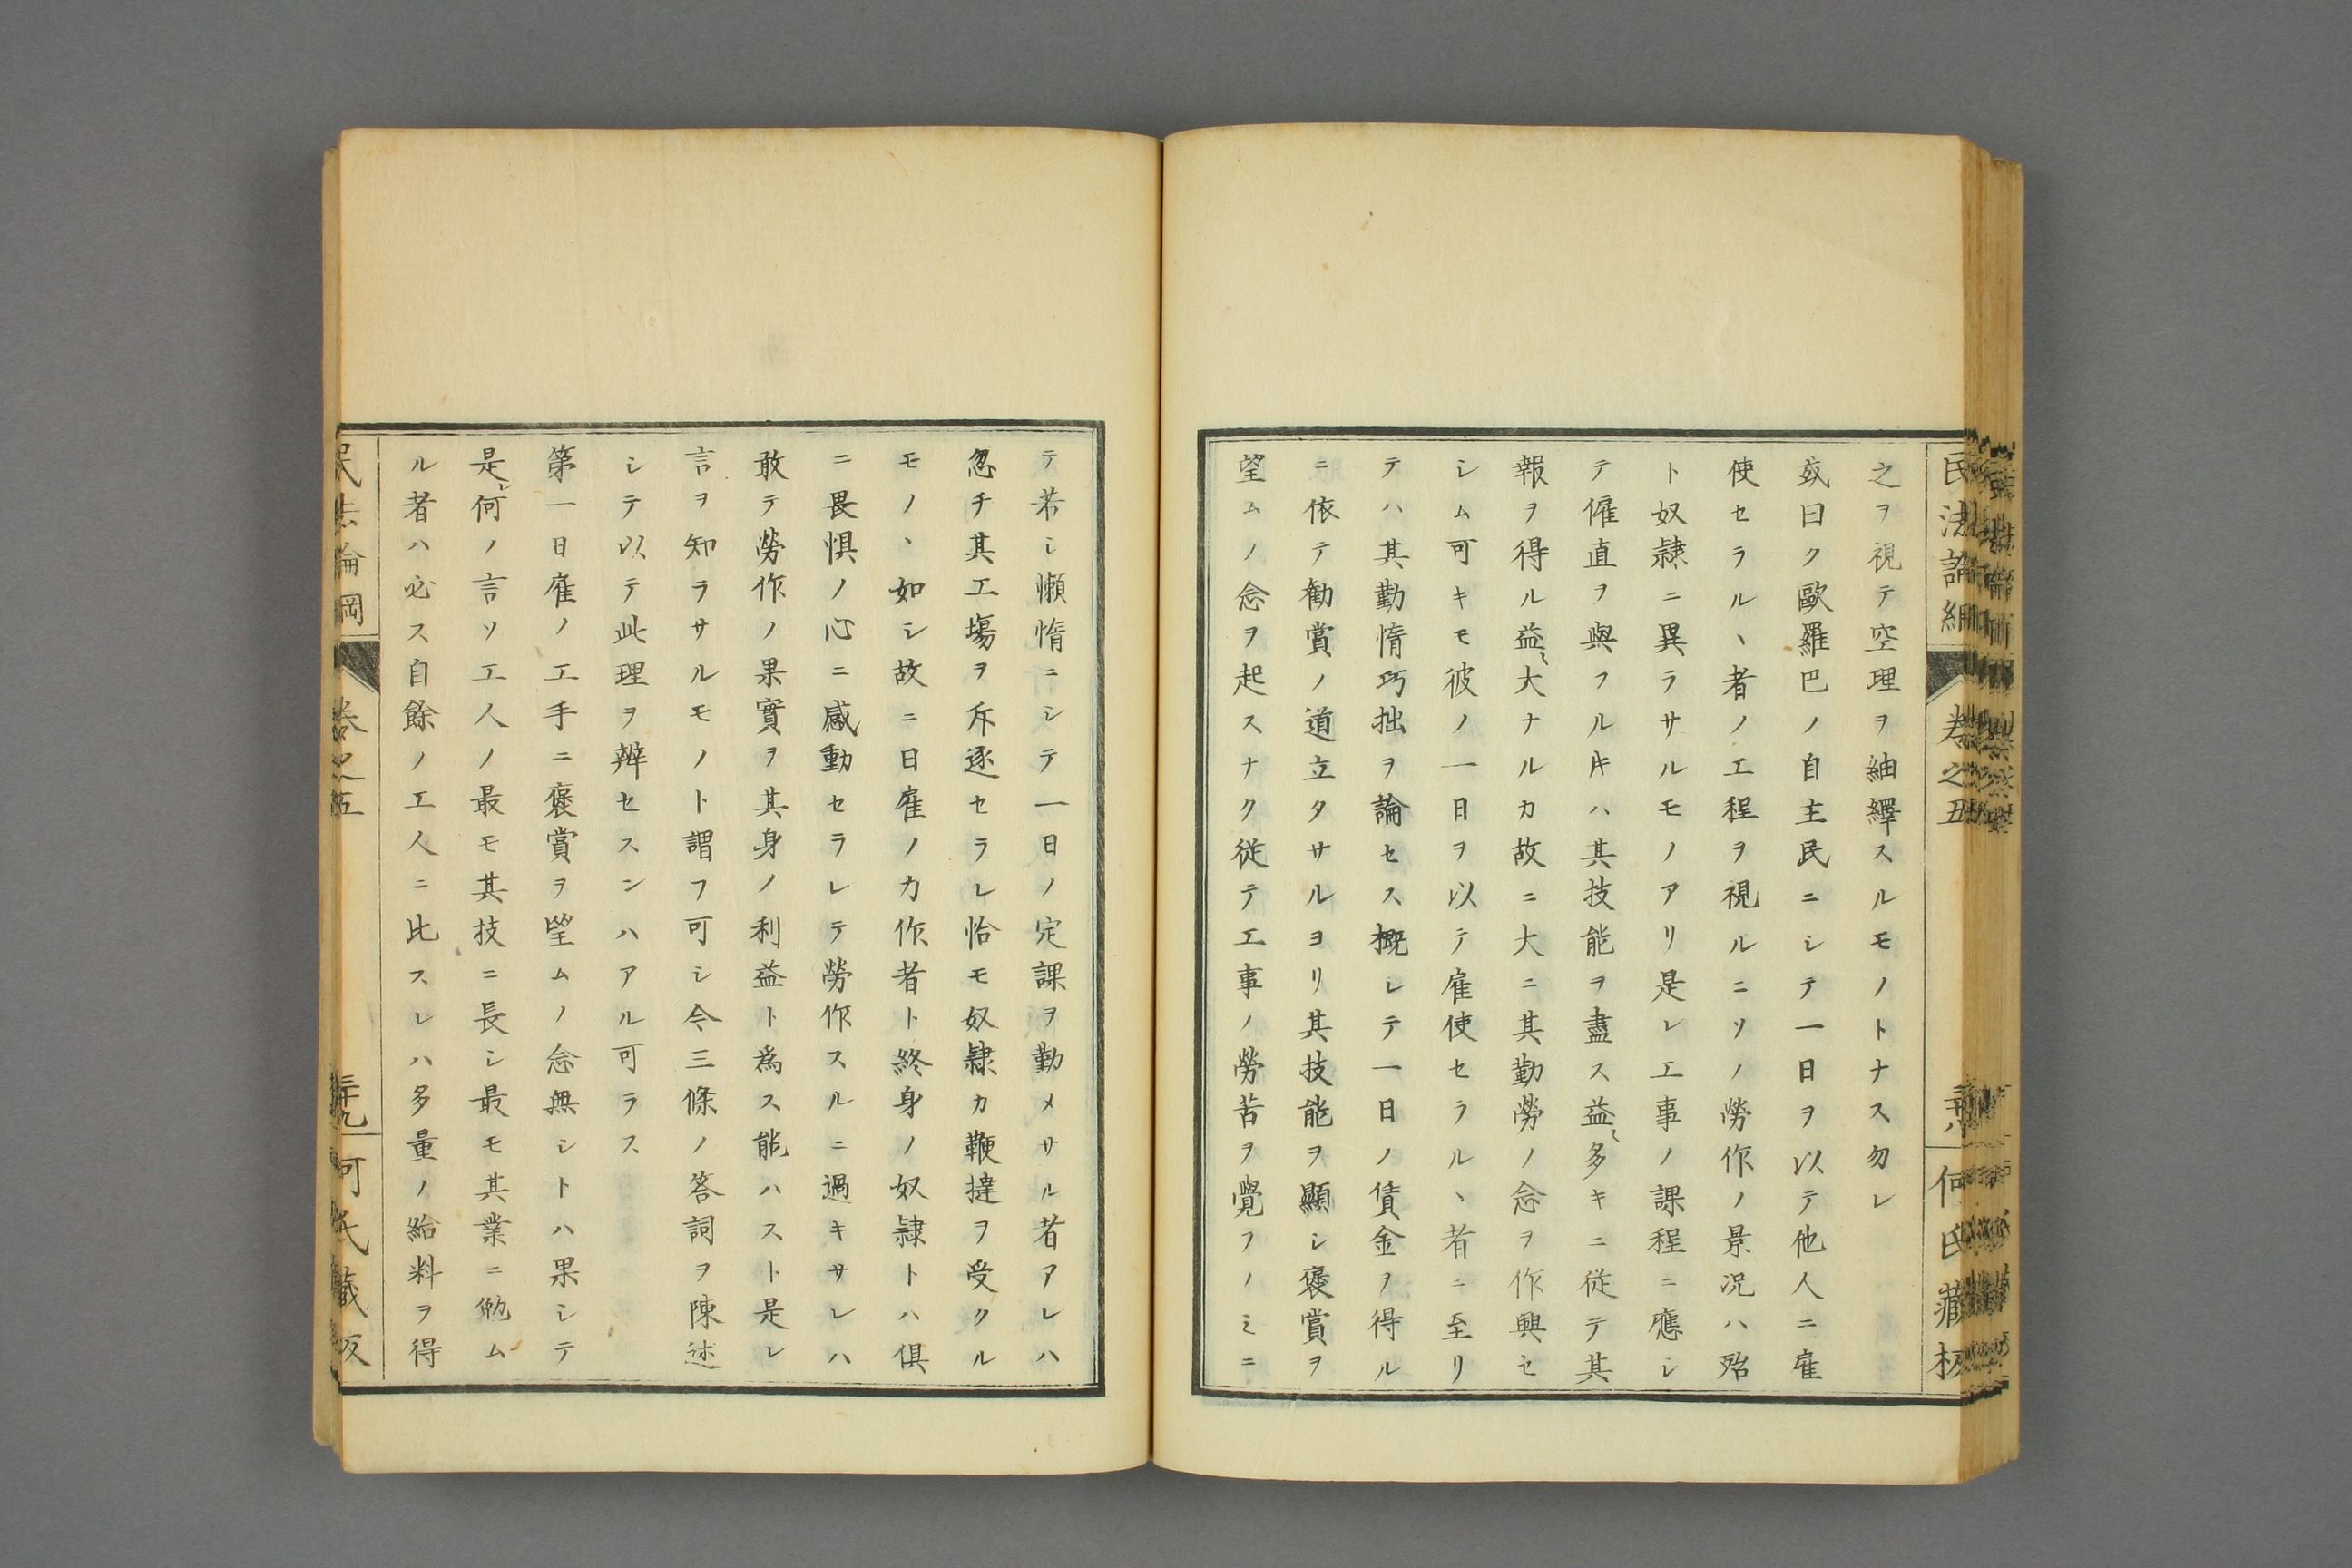 民法論綱
卷之五
何氏藏板
之ヲ視テ空理ヲ紬繹スルモノトナス勿レ
玆曰ク歐羅巴ノ自主民ニシテ一日ヲ以テ他人ニ雇
使セラルヽ者ノ工程ヲ視ルニソノ勞作ノ景況ハ殆
ト奴隷ニ異ラサルモノアリ是レ工事ノ課程ニ應シ
テ僱直ヲ與フル片ハ其技能ヲ盡ス益〻多キニ從テ其
報ヲ得ル益〻大ナルカ故ニ大ニ其勤勞ノ念ヲ作興セ
シム可キモ彼ノ一日ヲ以テ雇使セラルヽ者ニ至リ
テハ其勤惰巧拙ヲ論セス概シテ一日ノ賃金ヲ得ル
ニ依テ勸賞ノ道立タサルヨリ其技能ヲ顯シ褒賞ヲ
望ムノ念ヲ起スナク從テ工事ノ勞苦ヲ覺フノミニ
テ若シ懶惰ニシテ一日ノ定課ヲ勤メサル者アレハ
忽チ其工塲ヲ斥逐セラレ恰モ奴隷カ鞭撻ヲ受クル
モノヽ如シ故ニ日雇ノ力作者ト終身ノ奴隷トハ俱
ニ畏惧ノ心ニ感動セラレテ勞作スルニ過キサレハ
敢テ勞作ノ果實ヲ其身ノ利益ト爲ス能ハスト是レ
言ヲ知ラサルモノト謂フ可シ今三條ノ答詞ヲ陳述
シテ以テ此理ヲ辨セスンハアル可ラス
第一日雇ノ工手ニ褒賞ヲ望ムノ念無シトハ果シテ
是レ何ノ言ソ工人ノ最モ其技ニ長シ最モ其業ニ勉ム
ル者ハ必ス自餘ノ工人ニ比スレハ多量ノ給料ヲ得
民法論綱
卷之五
三十九
何氏藏板